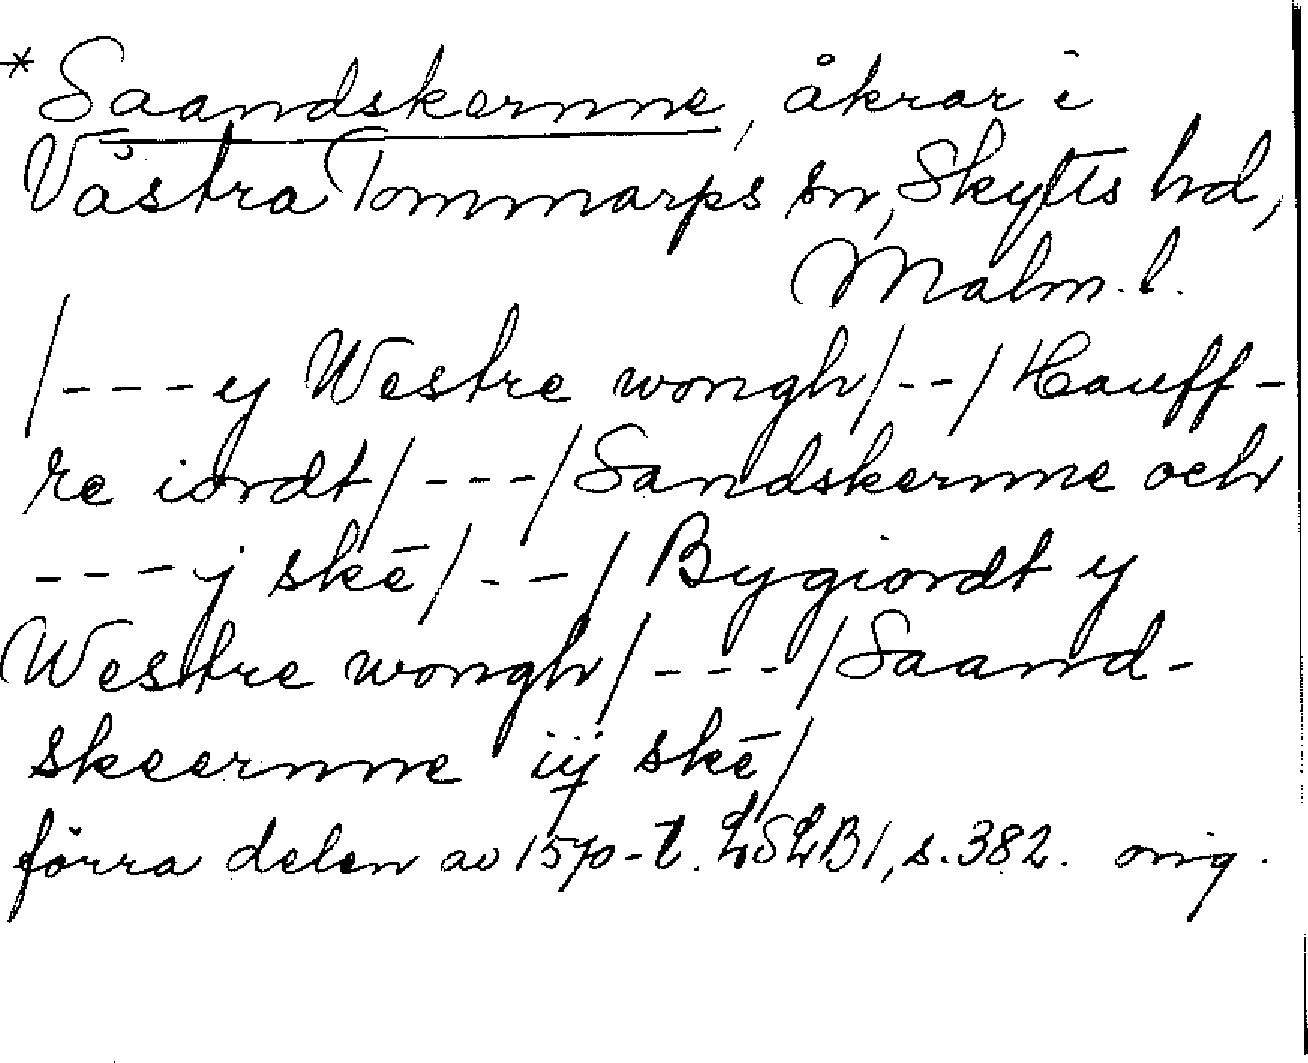 * Saandskernne, åkrar i
Västra Tommarps sn, Skytts hd,
Malm. l.
/---y Westre wongh/--/Hauff-
re iordt/---/Sandskernne och
---j skē/--/Bygiordt y
Westre wongh/---/Saand-
skeernne iij skē/
förra delen av 1570-t. LSLB1, s. 382. orig.